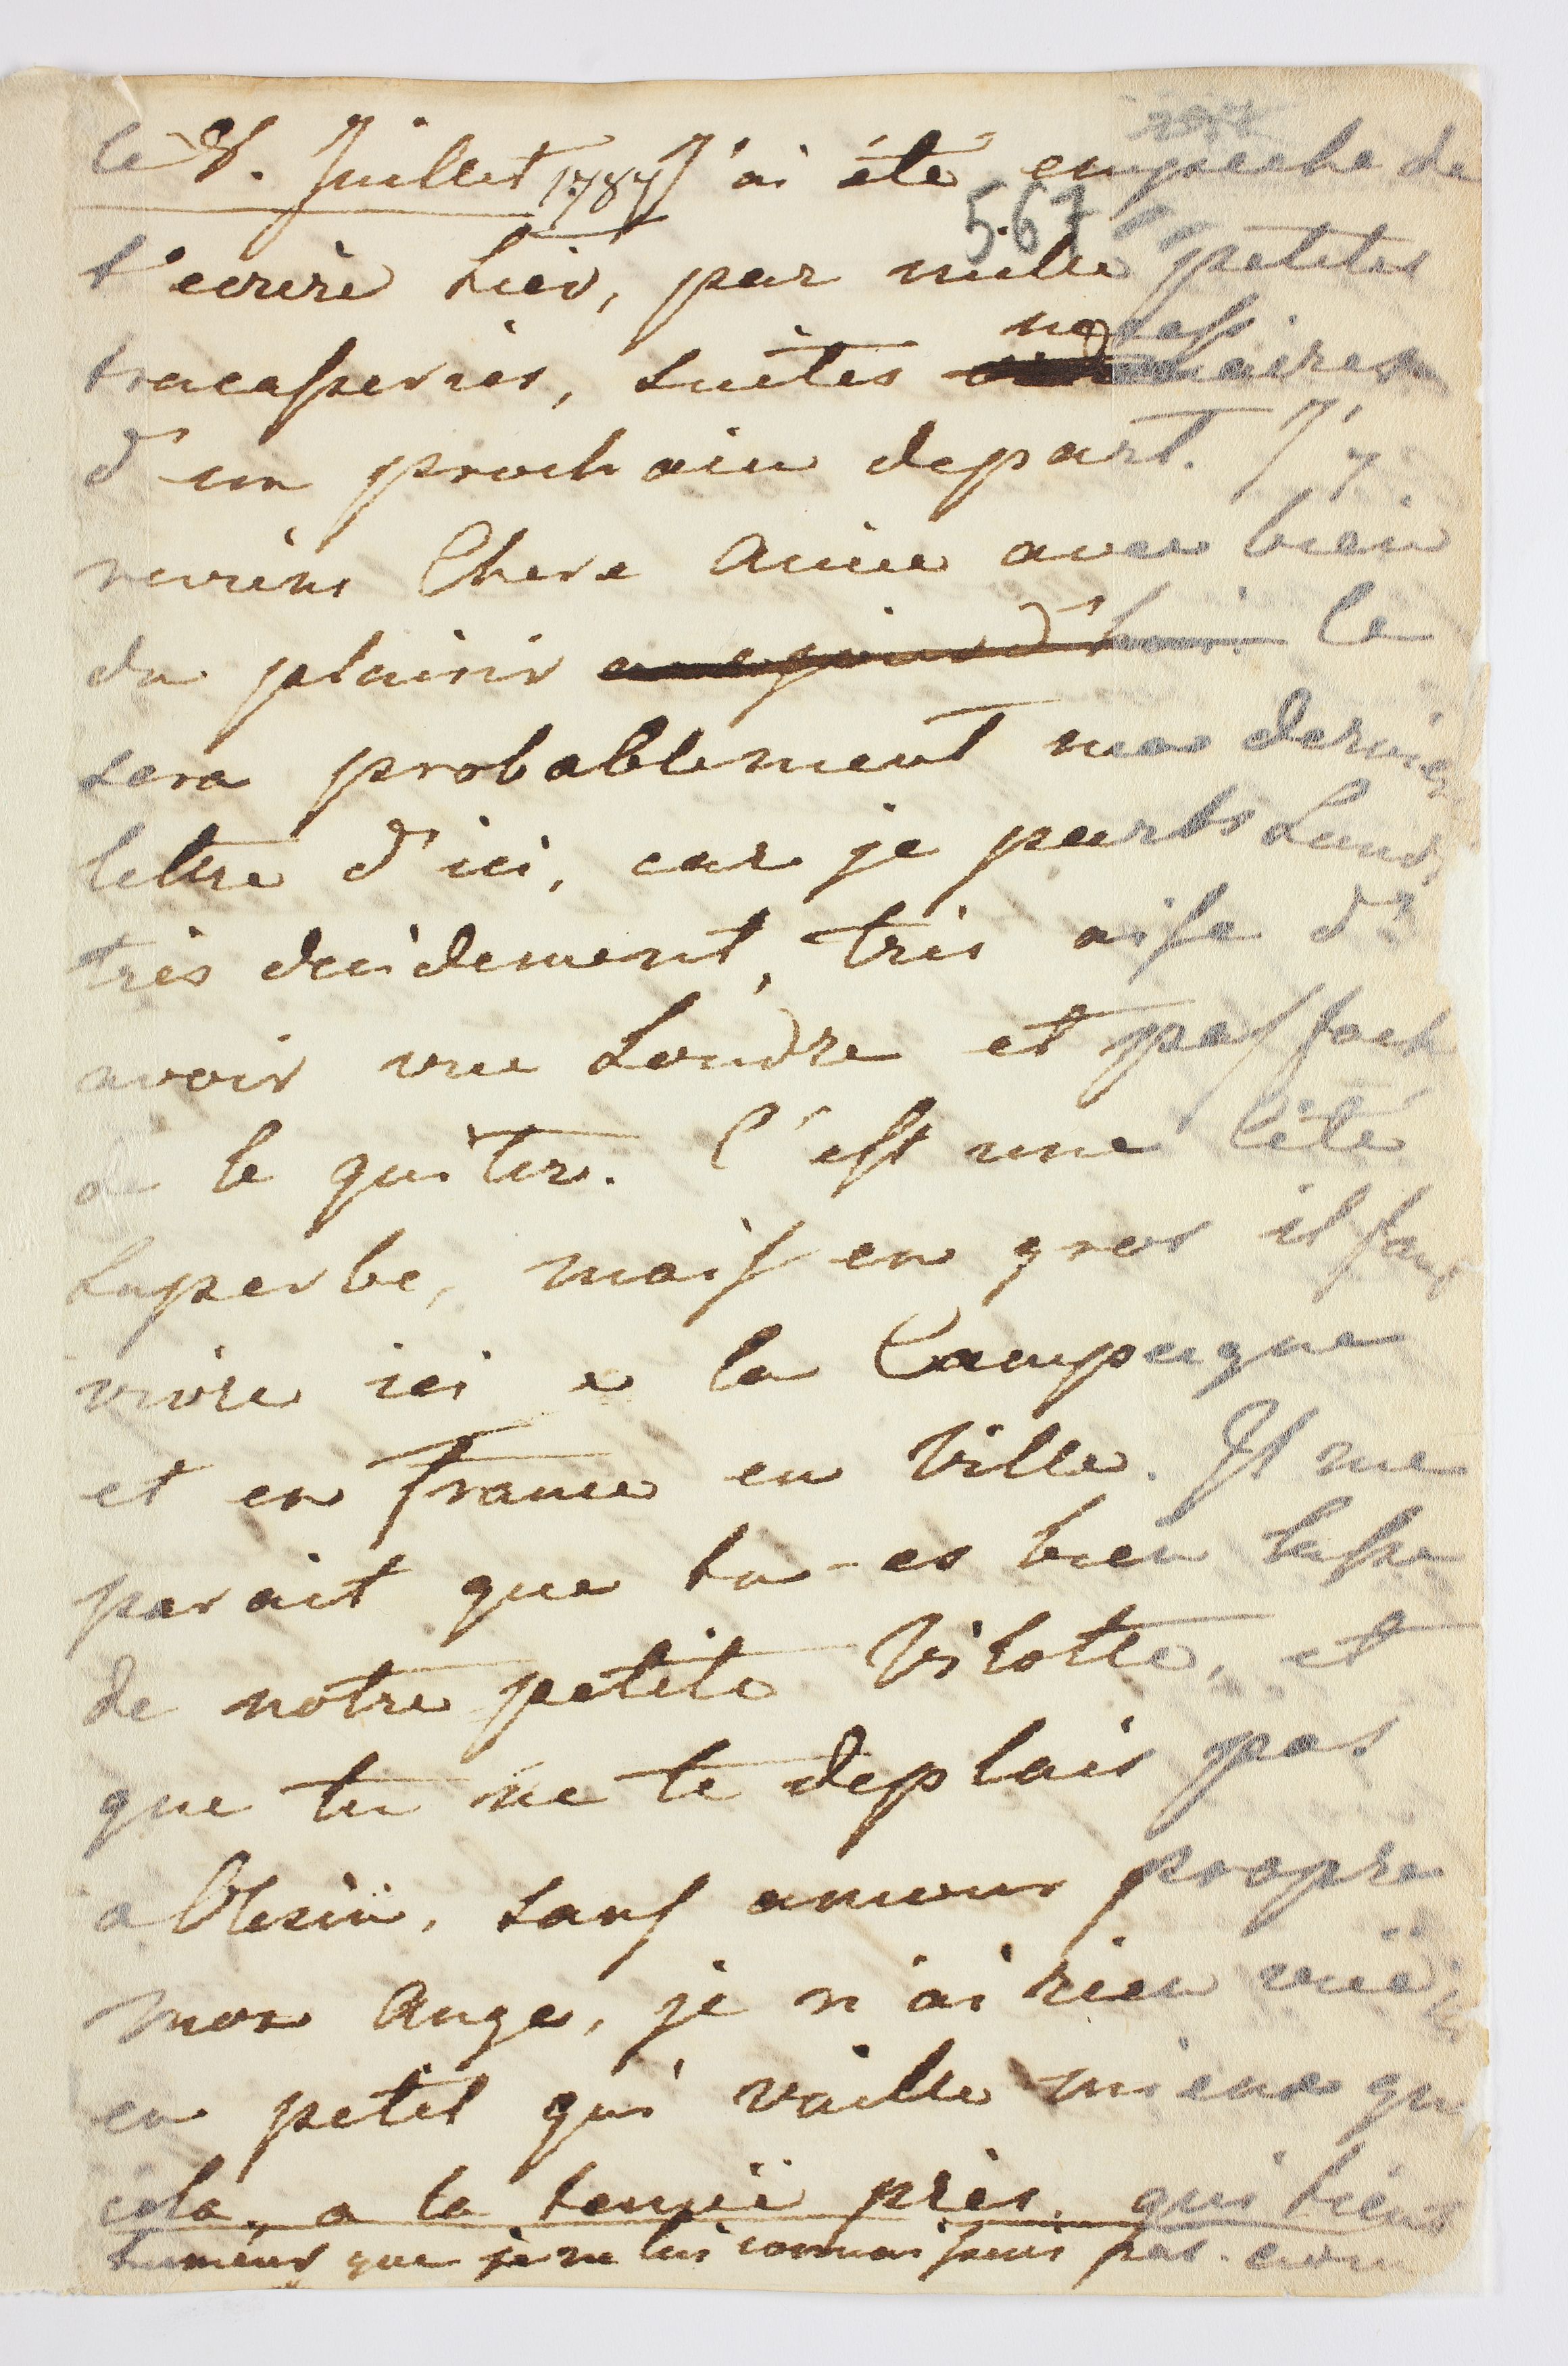 le 8. Juillet 1787 J'ai été empeché de
567
t'ecrire hier, par mille petites
necess
tracasseries, suites aires
d'un prochain depart. J'y
reviens Chere Amie avec bien
du plaisir aujourd'hui. Ce
sera probablement ma dernie
lettre d'ici, car je parts Lundi
très decidement, très aise d'
avoir vue Londre et pas fach
de le quiter. C'est une Cité
superbe, mais en gros il faut
vivre ici a la Campagne
et en france en Ville. Il me
parait que tu-es bien lasse
de notre petite Vilotte, et
que tu ne te deplais pas
a Olesin, sans amour propre
mon Ange, je n'ai rien vuë
en petit qui vaille mieux qu
cela, a la tenuë près, qui tient
humeur que je ne lui connoissais pas.